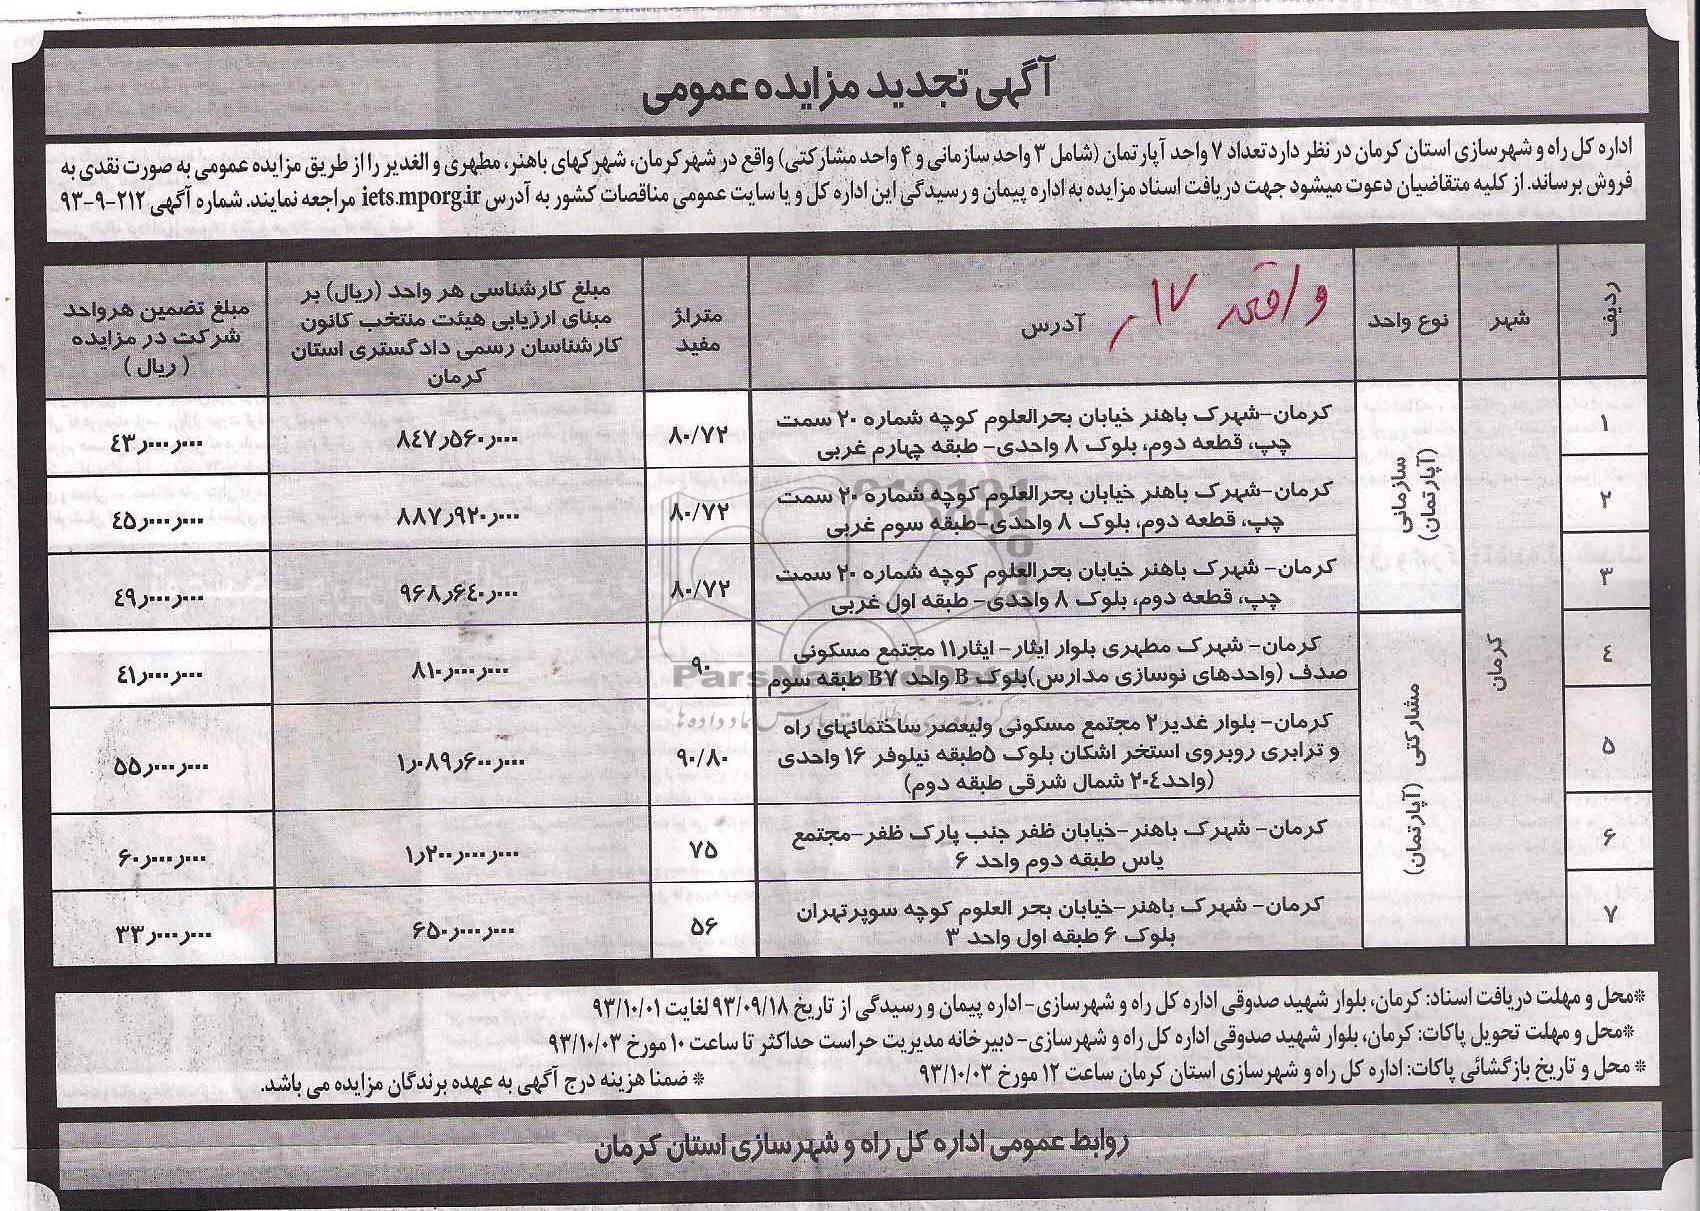 آگهی تجدید مزایده عمومی
اداره کل راه و شهرسازی استان کرمان در نظر دارد تعداد ۷ واحد آپارتمان (شامل ۳ واحد سازمانی و ۴ واحد مشارکتی) واقع در شهر کرمان، شهرکهای باهنر، مطهری و الغدیر را از طریق مزایده عمومی به صورت نقدی به
فروش برساند. از کلیه متقاضیان دعوت میشود جهت دریافت اسناد مزایده به اداره پیمان و رسیدگی این اداره کل و یا سایت عمومی مناقصات کشور به آدرس iets.mporg.ir مراجعه نمایند. شماره آگهی ۲۱۲-۹-۹۳
ردیف
شهر
نوع واحد
آدرس
متراژ
مفید
مبلغ کارشناسی هر واحد (ریال) بر
مبنای ارزیابی هیئت منتخب کانون
کارشناسان رسمی دادگستری استان
کرمان
مبلغ تضمین هرواحد
شرکت در مزایده
(ریال)
کرمان
سازمانی
(آپارتمان)
۱
کرمان-شهرک باهنر خیابان بحرالعلوم کوچه شماره ۲۰ سمت
چپ، قطعه دوم، بلوک ۸ واحدی- طبقه چهارم غربی
۸۰/۷۲
۸۴۷ر۵۶۰ر۰۰۰
۴۳ر۰۰۰ر۰۰۰
۲
کرمان-شهرک باهنر خیابان بحرالعلوم کوچه شماره ۲۰ سمت
چپ، قطعه دوم، بلوک ۸ واحدی-طبقه سوم غربی
۸۰/۷۲
۸۸۷ر۹۲۰ر۰۰۰
۴۵ر۰۰۰ر۰۰۰
۳
کرمان- شهرک باهنر خیابان بحرالعلوم کوچه شماره ۲۰ سمت
چپ، قطعه دوم، بلوک ۸ واحدی- طبقه اول غربی
۸۰/۷۲
۹۶۸ر۶۴۰ر۰۰۰
۴۹ر۰۰۰ر۰۰۰
مشارکتی (آپارتمان)
۴
کرمان- شهرک مطهری بلوار ایثار- ایثار۱۱ مجتمع مسکونی
صدف (واحدهای نوسازی مدارس)بلوک B واحد B۷ طبقه سوم
۹۰
۸۱۰ر۰۰۰ر۰۰۰
۴۱ر۰۰۰ر۰۰۰
۵
کرمان- بلوار غدیر۲ مجتمع مسکونی ولیعصر ساختمانهای راه
و ترابری روبروی استخر اشکان بلوک ۵طبقه نیلوفر ۱۶ واحدی
(واحد۲۰۴ شمال شرقی طبقه دوم)
۹۰/۸۰
۱ر۰۸۹ر۶۰۰ر۰۰۰
۵۵ر۰۰۰ر۰۰۰
۶
کرمان- شهرک باهنر-خیابان ظفر جنب پارک ظفر-مجتمع
یاس طبقه دوم واحد ۶
۷۵
۱ر۲۰۰ر۰۰۰ر۰۰۰
۶۰ر۰۰۰ر۰۰۰
۷
کرمان- شهرک باهنر-خیابان بحر العلوم کوچه سوپرتهران
بلوک ۶ طبقه اول واحد ۳
۵۶
۶۵۰ر۰۰۰ر۰۰۰
۳۳ر۰۰۰ر۰۰۰
*محل و مهلت دریافت اسناد: کرمان، بلوار شهید صدوقی اداره کل راه و شهرسازی- اداره پیمان و رسیدگی از تاریخ ۹۳/۰۹/۱۸ لغایت ۹۳/۱۰/۰۱
*محل و مهلت تحویل پاکات: کرمان، بلوار شهید صدوقی اداره کل راه و شهرسازی- دبیرخانه مدیریت حراست حداکثر تا ساعت ۱۰ مورخ ۹۳/۱۰/۰۳
* محل و تاریخ بازگشائی پاکات: اداره کل راه و شهرسازی استان کرمان ساعت ۱۲ مورخ ۹۳/۱۰/۰۳ * ضمنا هزینه درج آگهی به عهده برندگان مزایده می باشد.
روابط عمومی اداره کل راه و شهرسازی استان کرمان